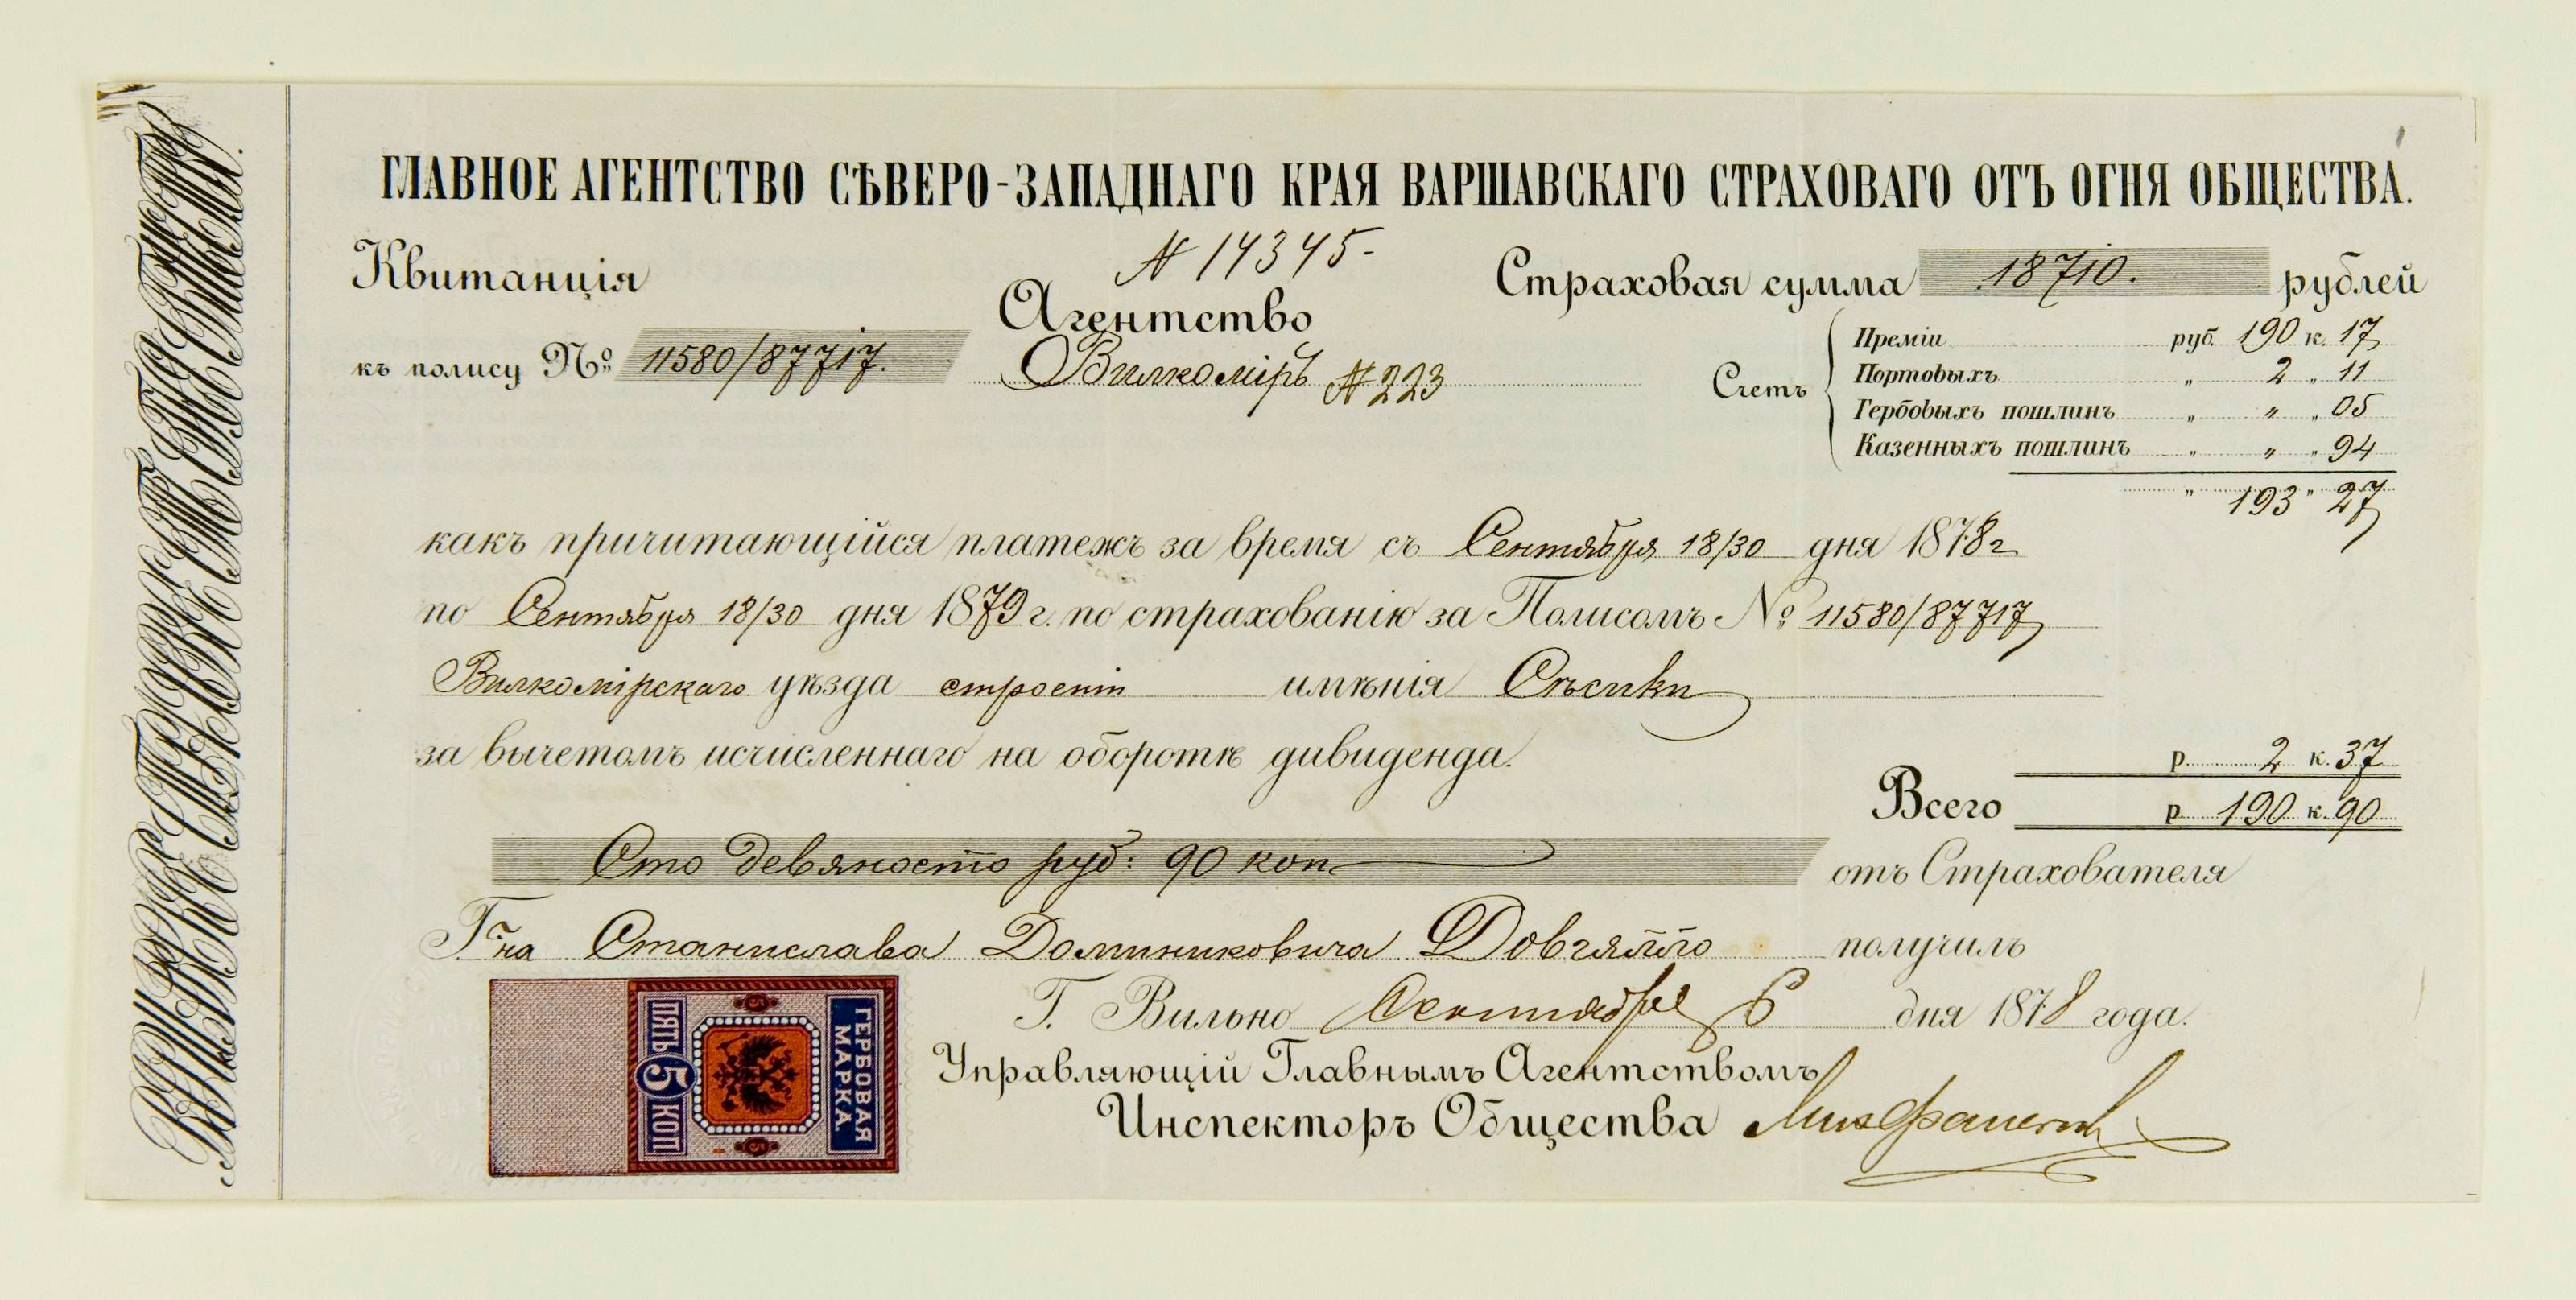 ГЛАВНОЕ АГЕНТСТВО СѢВЕРО-ЗАПАДНАГО КРАЯ ВАРШАВСКАГО СТРАХОВАГО ОТЪ ОГНЯ ОБЩЕСТВА.
Квитанція
№ 14345-
Страховая сумма 18710. рублей
къ полису № 11580/87717.
Агентство
Вилкоміръ № 223
Счетъ
Преміи руб. 190 к. 17
Портовыхъ „ 2 „ 11
Гербовыхъ пошлинъ „ „ „ 05
Казенныхъ пошлинъ „ „ „ 94
„ 193 „ 27
какъ причитающійся платежъ за время съ Сентября 18/30 дня 1878 г
по Сентября 18/30 дня 1879 г. по страхованію за Полисомъ № 11580/87717
Вилкомірскаго уѣзда строеній имѣнія Сѣсики
за вычетомъ исчисленнаго на оборотѣ дивиденда.
р. 2 к. 37
Всего р. 190 к. 90
Сто девяносто руб: 90 коп
отъ Страхователя
Г-на Станислава Доминиковича Довгялло получилъ
Г. Вильно Сентября 6 дня 1878 года.
Управляющій Главнымъ Агентствомъ
Инспекторъ Общества
ГЕРБОВАЯ
МАРКА
5
5
ПЯТЬ 5 КОП